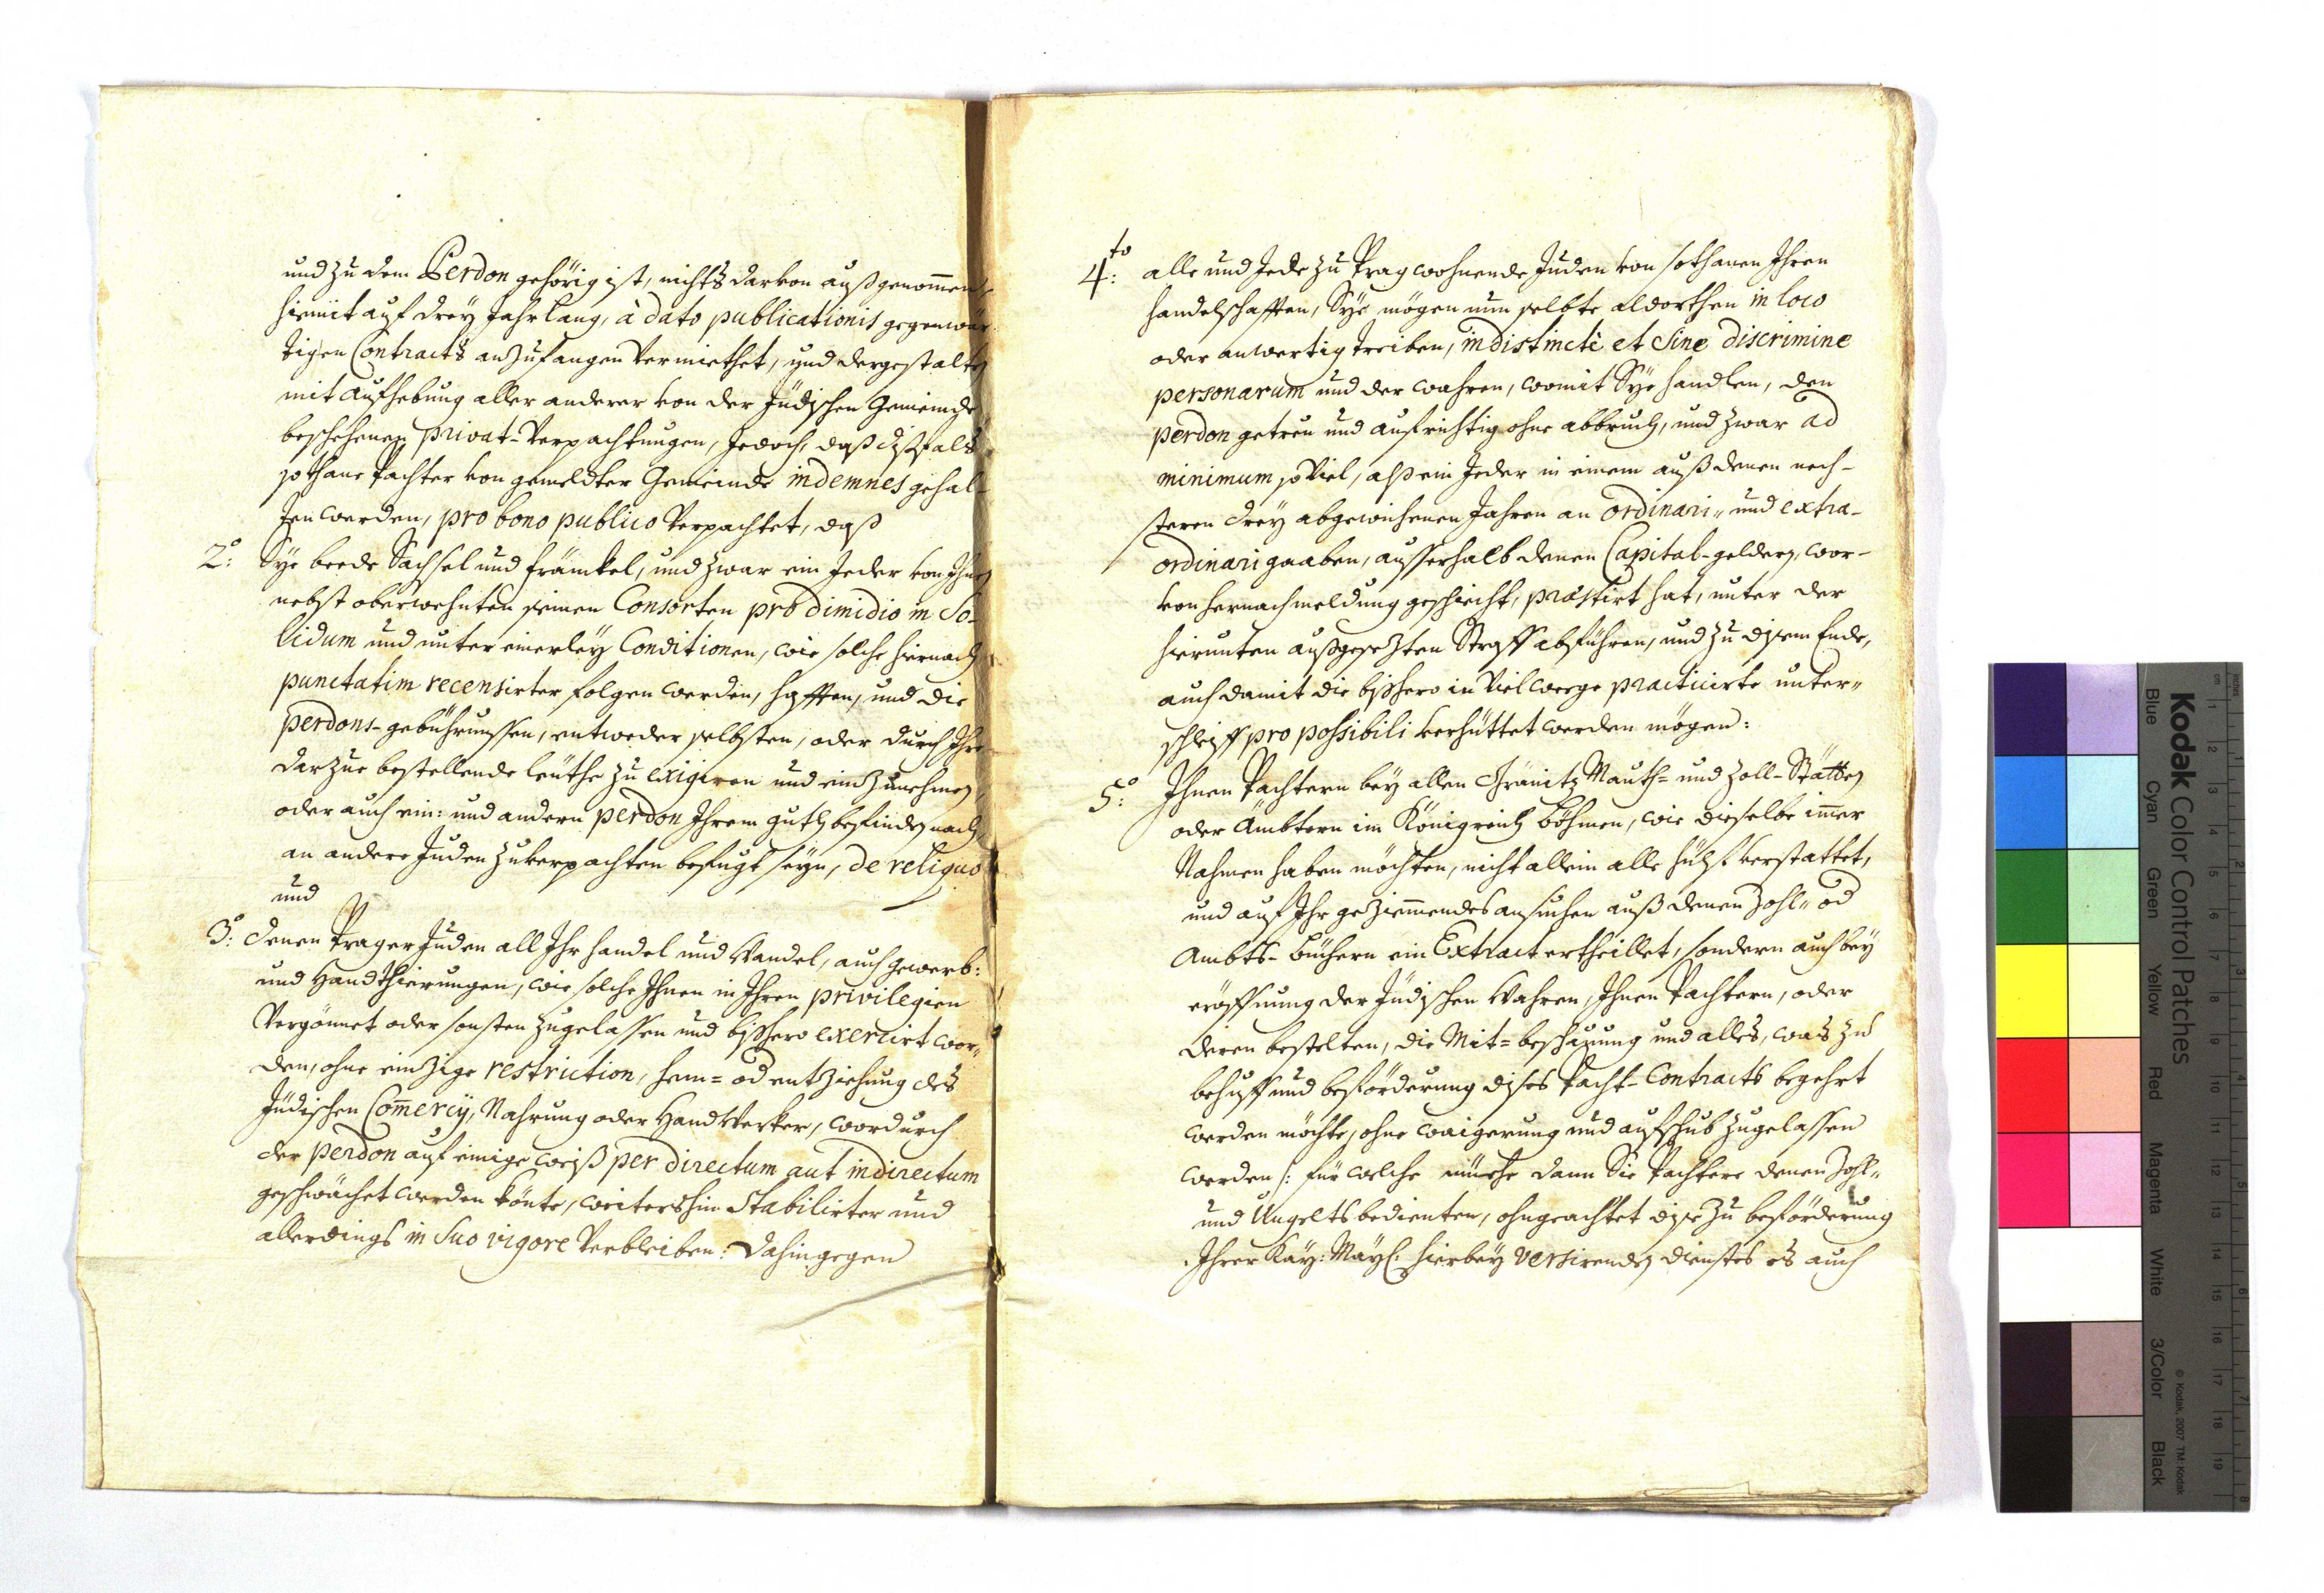 und zu dem Perdon gehörig ist, nichts darvon außgenom̄en,
hiemit auf drey Jahr lang, à dato publicationis gegenwär-
tigen Contracts anzufangen vermiethet, und dergestalten
mit aufhebung aller anderer von der Jüdischen Gemeinde
beschehenen privat-verpachtungen, jedoch, daß dißfals
sothane Pachter von gemeldter Gemeinde indemnes gehal-
ten werden, pro bono publico verpachtet, daß
2º: Sye beede Sachsel und Fränckel, und zwar ein Jeder von Ihnen
nebst oberwehnten seinen Consorten pro dimidio in So-
lidum und unter einerley Conditionen, wie solche hiernach
punctatim recensirter folgen werden, hafften, und die
perdons-gebührnussen, entweder selbsten, oder durch Ihre
darzue bestellende leuthe zu exigiren und einzunehmen,
oder auch ein: und andern perdon Ihrem guth befinden nach
an andere Juden zuverpachten befugt seyn, de reliquo
und
3º: denen Prager Juden all Ihr handel und Wandel, auch gewerb:
und Handthierungen, wie solche Ihnen in Ihren privilegien
vergönnet oder sonsten zugelassen und bißhero exercirt wor-
den, ohne einzige restriction, hem= od entziehung des
Jüdischen Com̄ercÿ, Nahrung oder Handwerker, wordurch
der perdon auf einige weiß per directum aut indirectum
geschwächet werden könte, weitershin stabilirter und
allerdings in suo vigore verbleiben: dahingegen
4to: alle und Jede zu Prag wohnende Juden von sothanen Ihren
handelschafften, Sye mögen nun selbte aldorthen in loco
oder anwertig treiben, indistinctè et sine discrimine
personarum und der wahren, womit Sye handlen, den
perdon getreu und aufrichtig ohne abbruch, und zwar ad
minimum so viel, alß ein Jeder in einem auß denen nech-
steren drey abgewichenen Jahren an ordinari- und extra-
ordinari gaaben, ausserhalb denen Capital-geldern, wor-
von hernach meldung geschiecht, praestirt hat, unter der
hierunten außgesezten Straff abführen, und zu disem Ende,
auch damit die bißhero in viel weege practicirte unter-
schleiff pro possibili verhüttet werden mögen:
5º: Ihnen Pachtern bey allen Gränitz Mauth= und Zoll-Stätten
oder Ämbtern im Königreich Böhmen, wie dieselbe im̄er
Nahmen haben möchten, nicht allein alle hülf verstattet,
und auf Ihr geziem̄endes ansuchen auß denen Zohl- od
Ambts-büchern ein Extract ertheillet, sondern auch bey
eröffnung der Jüdischen Wahren, Ihnen Pachtern, oder
deren bestelten, die Mit=beschauung und alles, was zu
behuff und beförderung dises Pacht-Contracts begehrt
werden möchte, ohne waigerung und aufschub zugelassen
werden /: für welche mühe dann Sie Pachtere denen Zohl-
und Ungelts bedienten, ohngeachtet dise zu beförderung
Ihrer Kay: Mayl: hierbey versirenden dienstes es auch
Kodak Color Control Patches
© Kodak, 2007 TM: Kodak
Blue Cyan Green Yellow Red Magenta White 3/Color Black
inches 1 2 3 4 5 6 7 8
cm 1 2 3 4 5 6 7 8 9 10 11 12 13 14 15 16 17 18 19